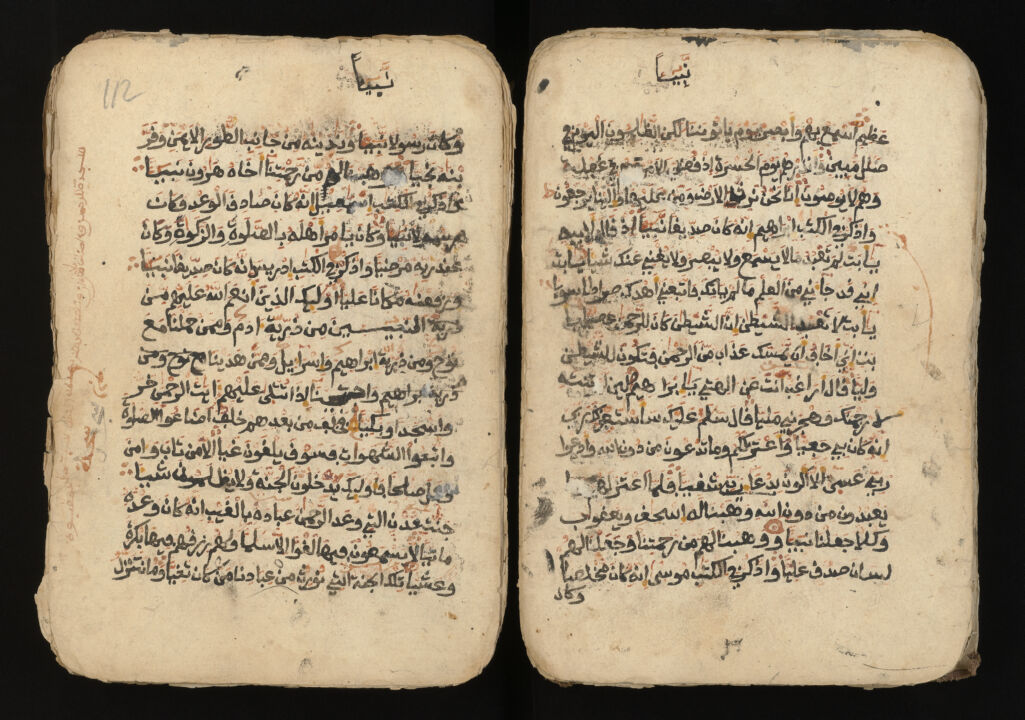 نبيا
عظيم اسمع بهم وابصر يوم ياتوننا لكن الظلمون اليوم في
ضلل مبين وانذرهم يوم الحسرة اذ قضي الامر وهم في غفلة
وهم لا يومنون انا نحن نرث الارض ومن عليها والينا يرجعون
واذكر في الكتب ابراهيم انه كان صديقا نبيا اذ قال لابيه
يابت لم تعبد ما لا يسمع ولا يبصر ولا يغني عنك شيا يابت
اني قد جاءني من العلم ما لم ياتك فاتبعني اهدك صراطا سويا
يا ابت لا تعبد الشيطن ان الشيطن كان للرحمن عصيا
يابت اني اخاف ان يمسك عذاب من الرحمن فتكون للشيطن
وليا قال اراغب انت عن الهتي يابراهيم لين لم تنته
لارجمنك واهجرني مليا قال سلم عليك ساستغفر لك ربي
انه كان بي حفيا واعتزلكم وما تدعون من دون الله وادعوا
ربي عسى الا اكون بدعاء ربي شقيا فلما اعتزلهم وما
يعبدون من دون الله وهبنا له اسحق ويعقوب
وكلا جعلنا نبيا ووهبنا لهم من رحمتنا وجعلنا لهم
لسان صدق عليا واذكر في الكتب موسى انه كان مخلصا
وكان
نبيا
112
وكان رسولا نبيا وندينه من جانب الطور الايمن وقر
بنه نجيا ووهبنا له من رحمتنا اخاه هرون نبيا
واذكر في الكتب اسمعيل انه كان صادق الوعد وكان
رسولا نبيا وكان يامر اهله بالصلوة والزكوة وكان
عند ربه مرضيا واذكر في الكتب ادريس انه كان صديقا نبيا
ورفعنه مكانا عليا اوليك الذين انعم الله عليهم من
النبيين من ذرية ادم وممن حملنا مع
نوح ومن ذرية ابراهيم واسراءيل وممن هدينا
واجتبينا اذا تتلى عليهم ايت الرحمن خر
وا سجدا وبكيا فخلف من بعدهم خلف اضاعوا الصلوة
واتبعوا الشهوات فسوف يلقون غيا الا من تاب وامن
وعمل صلحا فاوليك يدخلون الجنة ولا يظلمون شيا
جنت عدن التي وعد الرحمن عباده بالغيب انه كان وعده
ماتيا لا يسمعون فيها لغوا الا سلما ولهم رزقهم فيها بكرة
وعشيا تلك الجنة التي نورث من عبادنا من كان تقيا وما نتنزل